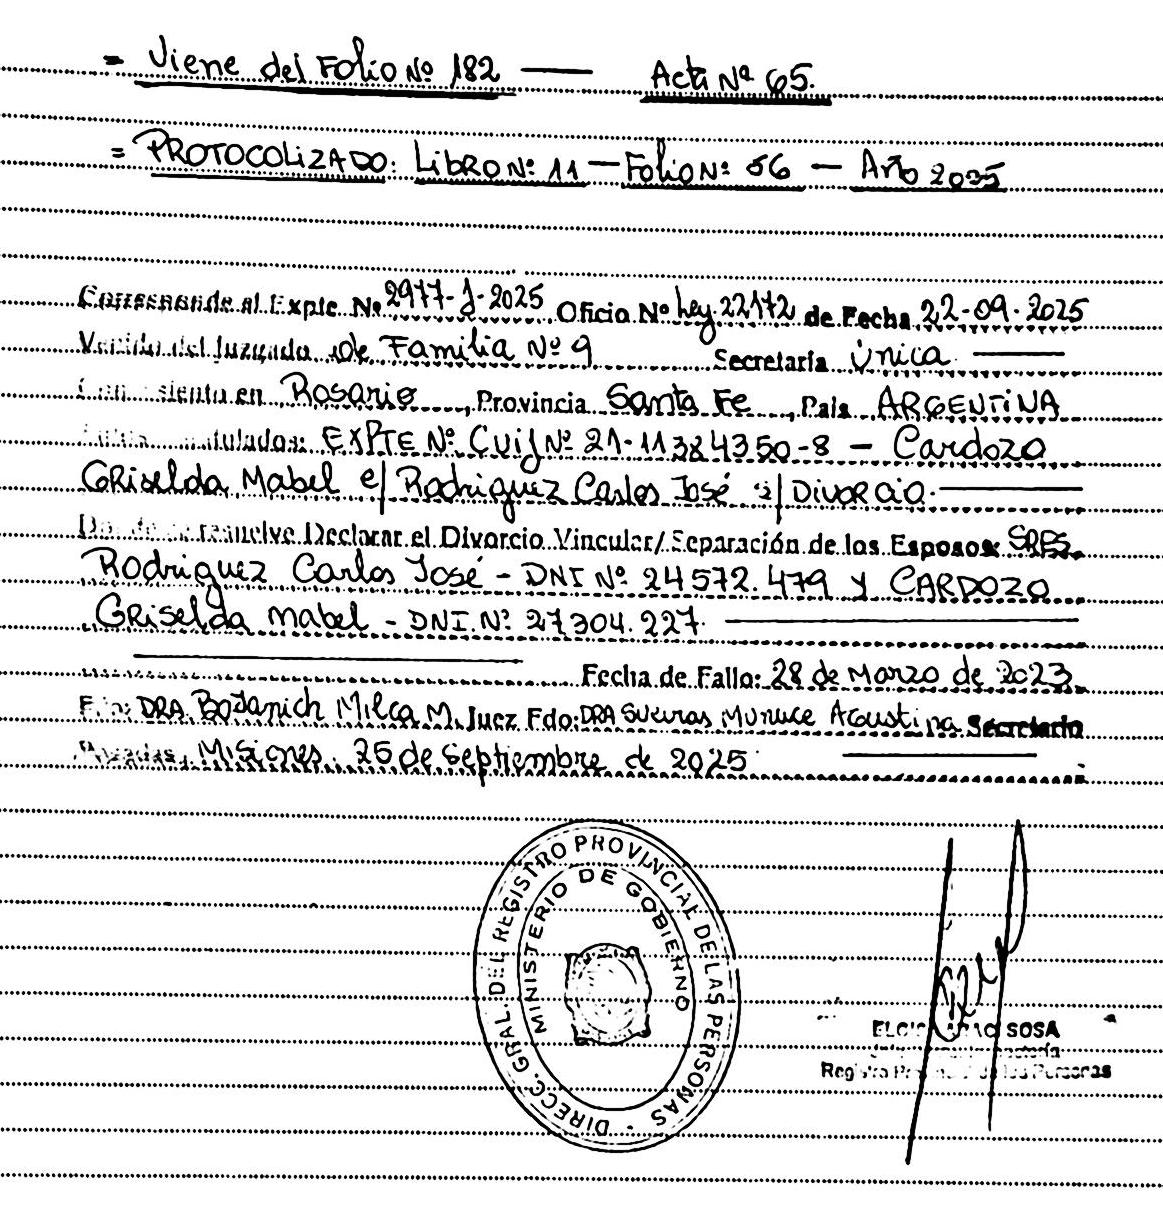 = Viene del Folio Nº 182 — Acta Nº 65.
= PROTOCOLIZADO: LIBRO Nº: 11 — Folio Nº: 56 — Año 2025
Corresponde al Expte Nº 2977-J-2025 Oficio Nº Ley 22172 de Fecha 22-09-2025
Venido del Juzgado de Familia Nº 9 Secretaría Única —
Con asiento en Rosario, Provincia Santa Fe, País ARGENTINA
Autos caratulados: EXPTE Nº CUIJ Nº 21-11384350-8 — Cardozo
Griselda Mabel c/ Rodriguez Carlos José s/ Divorcio. —
Donde se resuelve Declarar el Divorcio Vincular/Separación de los Esposos SRES.
Rodriguez Carlos José - DNI Nº 24572.479 y CARDOZO
Griselda Mabel - DNI. Nº 27304.227. —
Fecha de Fallo: 28 de Marzo de 2023.
Fdo: DRA Bojanich Milca M. Juez Fdo: DRA Agustina Secretario
Posadas, Misiones, 25 de Septiembre de 2025
DIRECC. GRAL. DEL REGISTRO PROVINCIAL DE LAS PERSONAS
MINISTERIO DE GOBIERNO
SOSA
Registro Provincial de las Personas